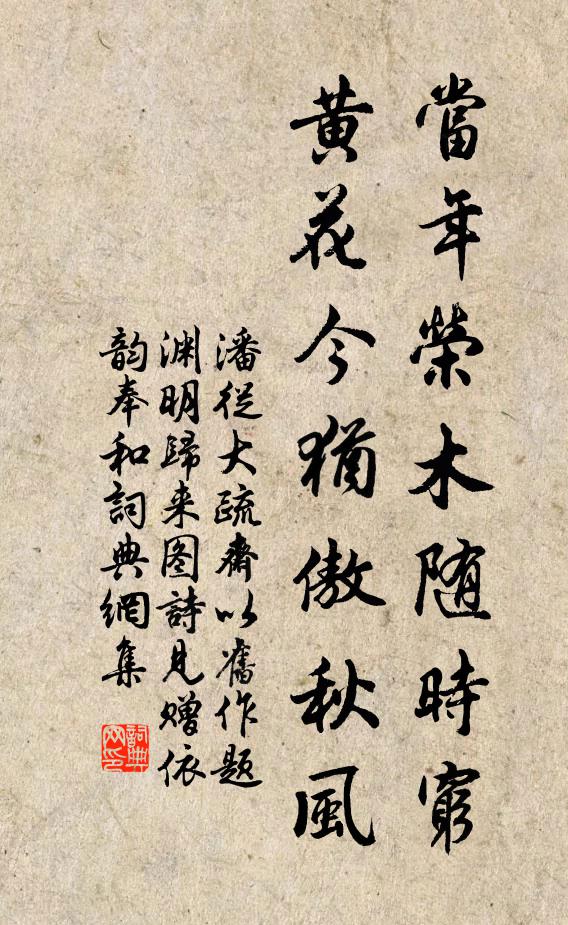 當年榮木随時窮
黄花今猶傲秋風
潘從大疏齋以舊作題
渊明歸来图詩見贈依
韵奉和詞典網集
詞典
网印